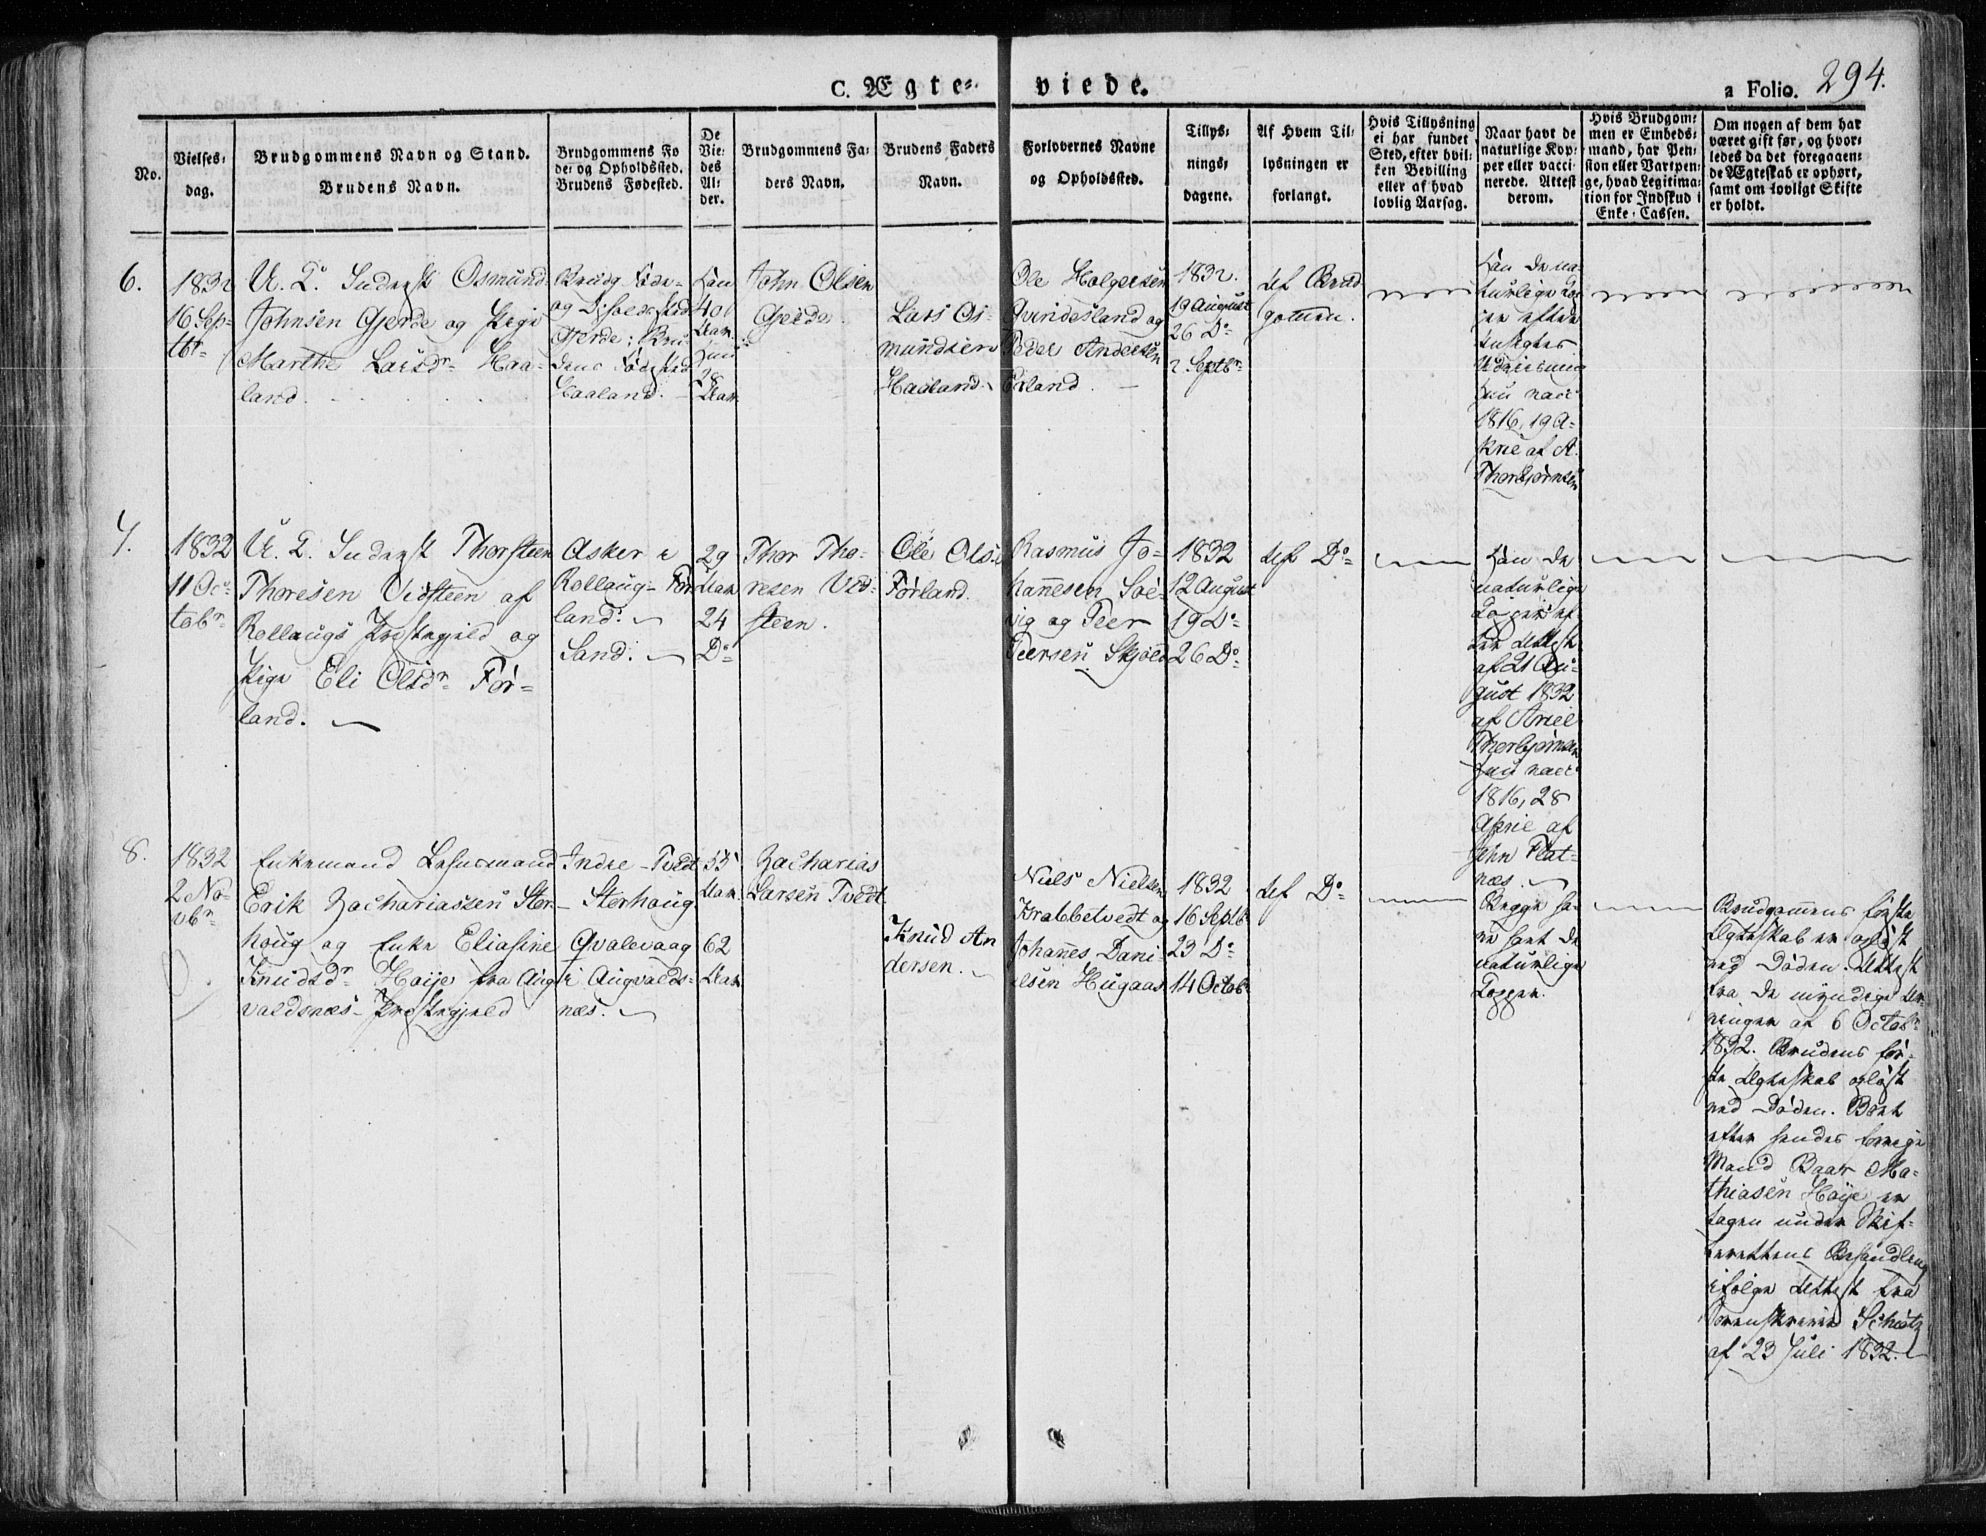 C. Ægte= viede.
a Folio. 294.
No.
Vielses=
dag.
Brudgommens Navn og Stand.
Brudens Navn.
Brudgommens Fø
de= og Opholdssted.
Brudens Fødested.
De
Vie=
des
Al=
der.
Brudgommens Fa=
ders Navn.
Brudens Faders
Navn.
Forlovernes Navne
og Opholdssted.
Tillys=
nings=
dagene.
Af Hvem Til=
lysningen er
forlangt.
Hvis Tillysning
ei har fundet
Sted, efter hvil=
ken Bevilling
eller af hvad
lovlig Aarsag.
Naar havt de
naturlige Kop=
per eller vacci=
nerede. Attest
derom.
Hvis Brudgom=
men er Embeds=
mand, har Pen=
sion eller Vartpen=
ge, hvad Legitima=
tion for Indskud i
Enke=Cassen.
Om nogen af dem har
været gift før, og hvor=
ledes da det foregaaen=
de Ægteskab er ophørt,
samt om lovligt Skifte
er holdt.
6.
1832
16 Sep=
tbr
U. K. Inderst Osmund
Johnsen Gjerde og Pige
Marthe Larsdr Haa=
land.
Brudg. Føde=
og Opholdssted
Gjerde; Bru
dens Fødested
Haaland.
han
40
Aar
hun
28
Aar
John Olsen
Gjerde.
Lars Os=
mundsen
Haaland.
Ole Holgersen
Qvindesland og
Peder Andersen
Erland.
1832.
19 August
26 Do
2 Septbr
af Brud
gommen.
han de na
turlige Kop
per efter
Sigtes
Udvisning
hun vacc
1816, 19 A=
pril af A.
Thorbjørnsen
7.
1832
11 Oc=
tobr
U. K. Inderst Thorsteen
Thoresen Vidsteen af
Rollaugs Præstegjeld og
Pige Eli Olsdr Før=
land.
Asker i
Rollaug. Før
land i
Sand.
29
Aar
24
Do
Thor Tho=
resen Vid=
steen.
Ole Ols.
Førland.
Rasmus Jo=
hannesen Søe=
vig og Peer
Peersen Skjold
1832
12 August
19 Do
26 Do
af Do
Han de
naturlige
Kopper ef
ter Attest
af 21 Au=
gust 1832
af Ariel
Thorbjørnsen
hun vacc
1816, 28
April af
John Plat=
næs.
8.
1832
2 No=
vbr
Enkemand Leensmand
Erik Zachariassen Stor=
houg og Enke Eliasine
Knudsdr Høije fra Aug
valdsnæs Præstegjeld
Indre-Tvedt
Storhoug.
Qvalevaag
i Augvalds=
næs.
55
Aar
62
Aar
Zacharias
Larsen Tvedt
Knud An
dersen.
Niels Nielsen
Krabbetvedt og
Johannes Dani=
elsen Hugaas
1832
16 Septb
23 Do
14 Octob
af Do
Begge ha=
ve havt de
naturlige
Kopper.
Brudgommens første
Ægteskab er opløst
ved Døden. Attest
fra de myndige Ar
vinger af 6 Octobr
1832. Brudens før=
ste Ægteskab opløst
ved Døden. Boet
efter hendes forrige
Mand Baar Ma=
thiasen Høije er
tagen under Skif=
terettens Behandling
ifølge Attest fra
Sorenskriver Schiøtz
af 23 Juli 1832.